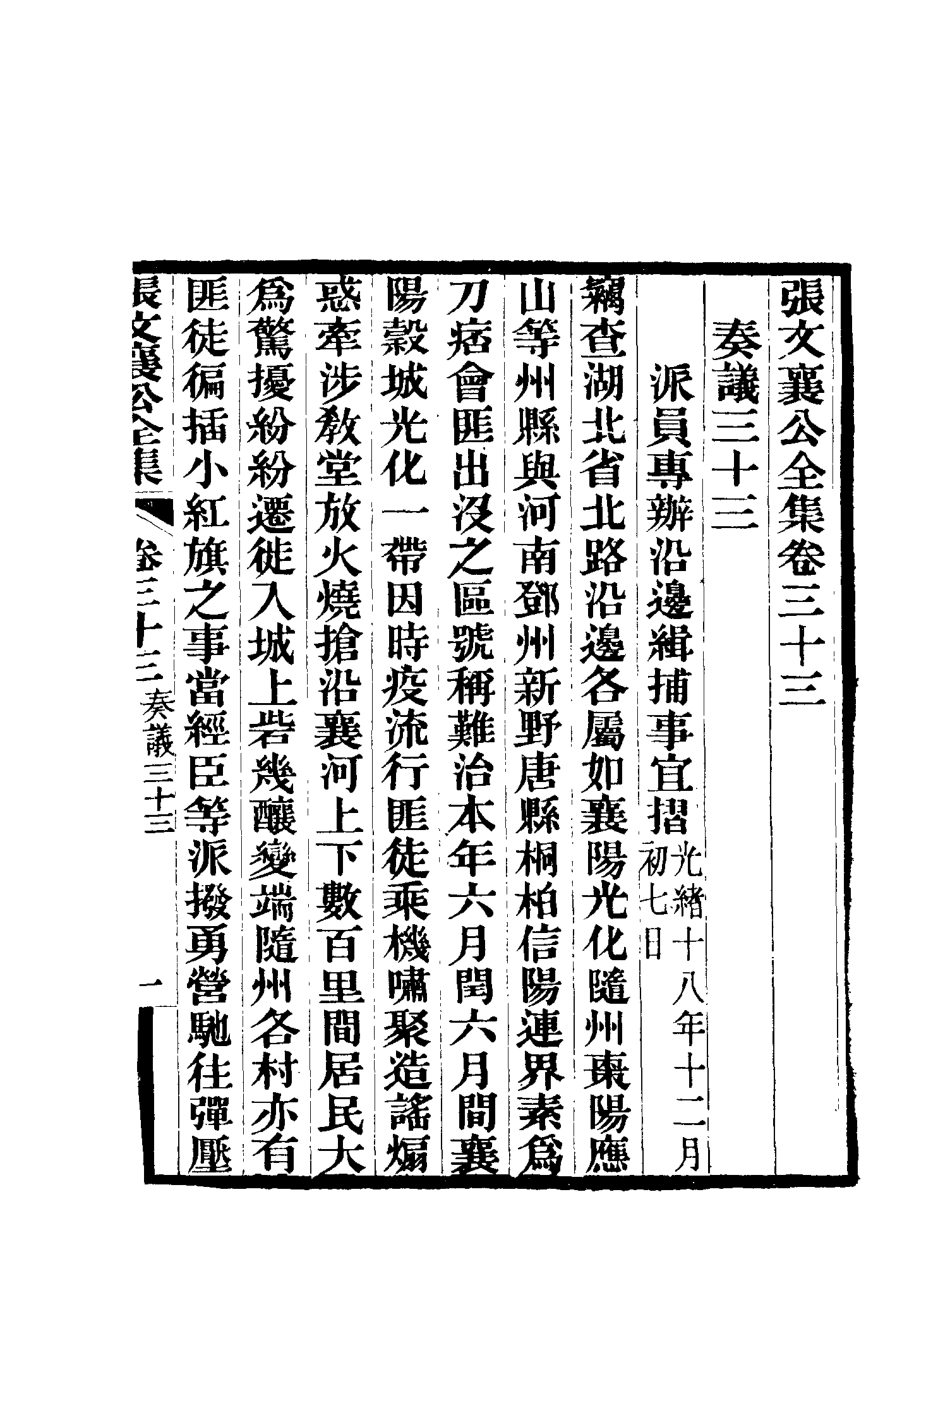 張文襄公全集卷三十三
奏議三十三
派員專辦沿邊緝捕事宜摺光緒十八年十二月
初七日
竊查湖北省北路沿邊各屬如襄陽光化隨州棗陽應
山等州縣與河南鄧州新野唐縣桐柏信陽連界素爲
刀痞會匪出沒之區號稱難治本年六月閏六月間襄
陽穀城光化一帶因時疫流行匪徒乘機嘯聚造謠煽
惑牽涉敎堂放火燒搶沿襄河上下數百里間居民大
爲驚擾紛紛遷徙入城上砦幾釀變端隨州各村亦有
匪徒徧插小紅旗之事當經臣等派撥勇營馳往彈壓
張文襄公全集 卷三十三 奏議三十三 一